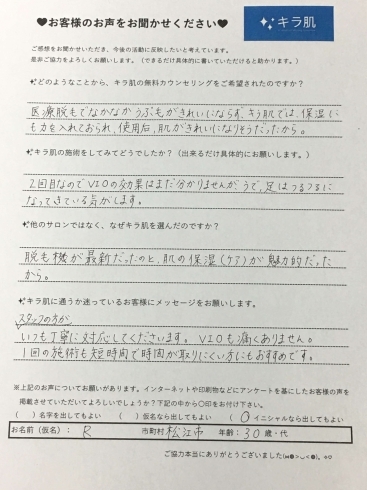 ♥お客様のお声をお聞かせください♥
キラ肌
ご感想をお聞かせいただき、今後の活動に反映したいと考えています。
是非ご協力をよろしくお願いします。（できるだけ具体的に書いていただけると助かります。）
どのようなことから、キラ肌の無料カウンセリングをご希望されたのですか？
医療脱毛でなかなかうぶ毛がきれいにならず、キラ肌では、保湿に
も力を入れておられ、使用后、肌がきれいになりそうだったから。
キラ肌の施術をしてみてどうでしたか？（出来るだけ具体的にお願いします。）
2回目なのでVIOの効果はまだ分かりませんがうで、足はつるつるに
なってきている気がします。
他のサロンではなく、なぜキラ肌を選んだのですか？
脱毛機が最新だったのと、肌の保湿（ケア）が魅力的だった
から。
キラ肌に通うか迷っているお客様にメッセージをお願いします。
スタッフの方が
いつも丁寧に対応してくださいます。VIOも痛くありません。
1回の施術も短時間で時間が取りにくい方にもおすすめです。
※上記のお声についてお願いがあります。インターネットや印刷物などにアンケートを基にしたお客様の声を
掲載させていただいてよろしいでしょうか？下記の中から〇印をお付け下さい。
（ ）名字を出してもよい （ ）仮名なら出してもよい （ O イニシャルなら出してもよい
お名前（仮名）： R 市町村 松江市 年齢：30歳・代
ご協力本当にありがとうございました(*●>◡<●)。*o